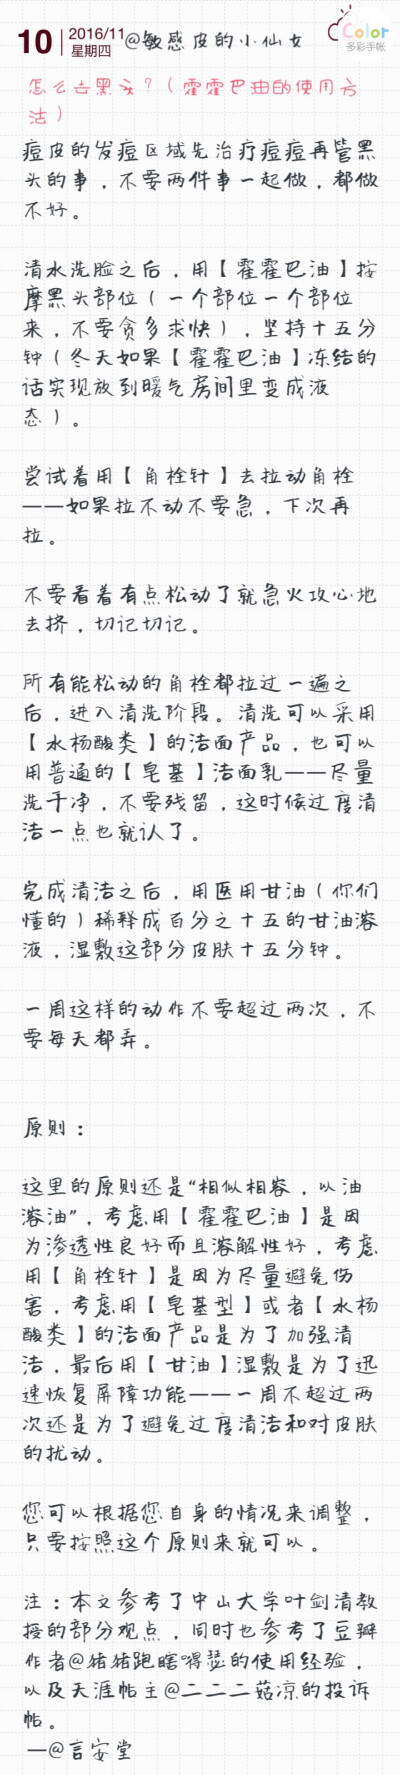 10
2016/11
星期四
@敏感皮的小仙女
Color
多彩手帐
怎么去黑头?(霍霍巴油的使用方
法)
痘皮的发痘区域先治疗痘痘再管黑
头的事，不要两件事一起做，都做
不好。
清水洗脸之后，用【霍霍巴油】按
摩黑头部位(一个部位一个部位
来，不要贪多求快)，坚持十五分
钟(冬天如果【霍霍巴油】冻结的
话实现放到暖气房间里变成液
态)。
尝试着用【角栓针】去拉动角栓
——如果拉不动不要急，下次再
拉。
不要看着有点松动了就急火攻心地
去挤，切记切记。
所有能松动的角栓都拉过一遍之
后，进入清洗阶段。清洗可以采用
【水杨酸类】的洁面产品，也可以
用普通的【皂基】洁面乳——尽量
洗干净，不要残留，这时候过度清
洁一点也就认了。
完成清洁之后，用医用甘油(你们
懂的)稀释成百分之十五的甘油溶
液，湿敷这部分皮肤十五分钟。
一周这样的动作不要超过两次，不
要每天都弄。
原则：
这里的原则还是“相似相容，以油
溶油”，考虑用【霍霍巴油】是因
为渗透性良好而且溶解性好，考虑
用【角栓针】是因为尽量避免伤
害，考虑用【皂基型】或者【水杨
酸类】的洁面产品是为了加强清
洁，最后用【甘油】湿敷是为了迅
速恢复屏障功能——一周不超过两
次还是为了避免过度清洁和对皮肤
的扰动。
您可以根据您自身的情况来调整，
只要按照这个原则来就可以。
注：本文参考了中山大学叶剑清教
授的部分观点，同时也参考了豆瓣
作者@猪猪跑瞎嘚瑟的使用经验，
以及天涯帖主@二二二菇凉的投诉
帖。
—@言安堂